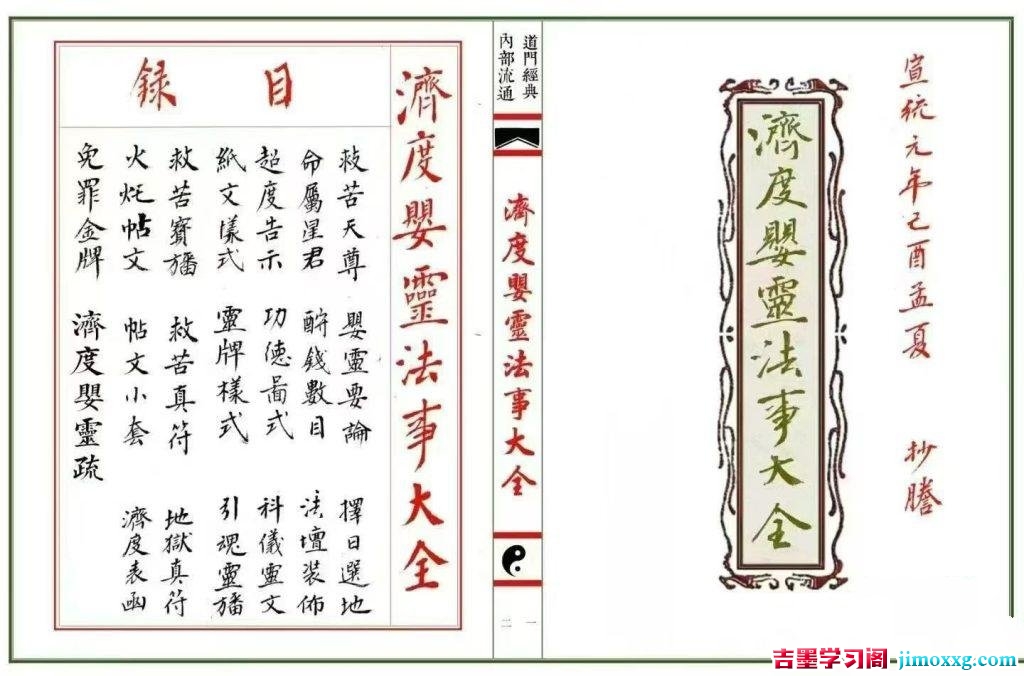 宣統元年己酉孟夏 抄謄
濟度嬰靈法事大全
道門經典
內部流通
濟度嬰靈法事大全
一
二
濟度嬰靈法事大全
目錄
救苦天尊 嬰靈要論 擇日選地
命屬星君 酧錢數目 法壇裝佈
超度告示 功德畐式 科儀靈文
紙文樣式 靈牌樣式 引魂靈旛
救苦寶旛 救苦真符 地獄真符
火炁帖文 帖文小套 濟度表函
免罪金牌 濟度嬰靈疏
吉墨学习阁-jimoxxg.com